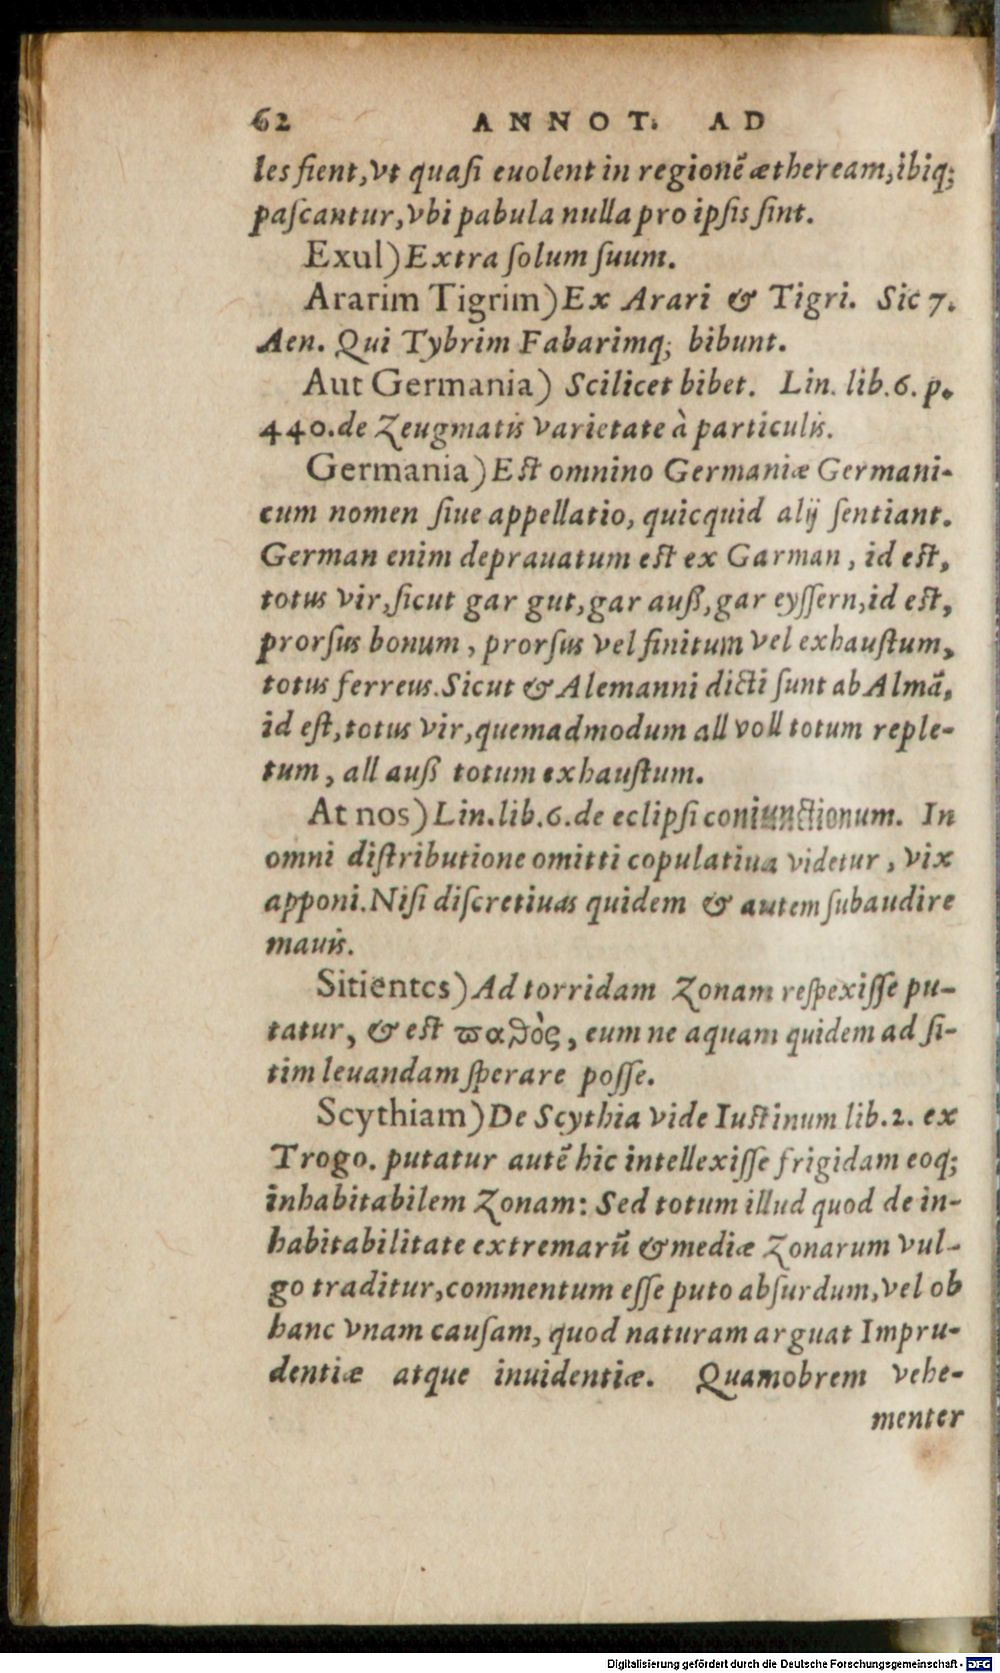 62 ANNOT. AD
les fient, vt quaſi euolent in regionẽ ætheream, ibiq;
paſcantur, vbi pabula nulla pro ipſis ſint.
Exul) Extra ſolum ſuum.
Ararim Tigrim) Ex Arari & Tigri. Sic 7.
Aen. Qui Tybrim Fabarimq; bibunt.
Aut Germania) Scilicet bibet. Lin. lib. 6. p.
440. de Zeugmatis varietate à particulis.
Germania) Eſt omnino Germaniæ Germani-
cum nomen ſiue appellatio, quicquid alij ſentiant.
German enim deprauatum eſt ex Garman, id eſt,
totus vir, ſicut gar gut, gar auß, gar eyſſern, id eſt,
prorſus bonum, prorſus vel finitum vel exhauſtum,
totus ferreus. Sicut & Alemanni dicti ſunt ab Almã,
id eſt, totus vir, quemadmodum all voll totum reple-
tum, all auß totum exhauſtum.
At nos) Lin. lib. 6. de eclipſi coniunctionum. In
omni diſtributione omitti copulatiua videtur, vix
apponi. Niſi diſcretiuas quidem & autem ſubaudire
mauis.
Sitientes) Ad torridam Zonam reſpexiſſe pu-
tatur, & eſt ϖαθὸς, eum ne aquam quidem ad ſi-
tim leuandam ſperare poſſe.
Scythiam) De Scythia vide Iuſtinum lib. 2. ex
Trogo. putatur autẽ hic intellexiſſe frigidam eoq;
inhabitabilem Zonam: Sed totum illud quod de in-
habitabilitate extremarũ & mediæ Zonarum vul-
go traditur, commentum eſſe puto abſurdum, vel ob
hanc vnam cauſam, quod naturam arguat Impru-
dentiæ atque inuidentiæ. Quamobrem vehe-
menter
Digitalisierung gefördert durch die Deutsche Forschungsgemeinschaft - DFG